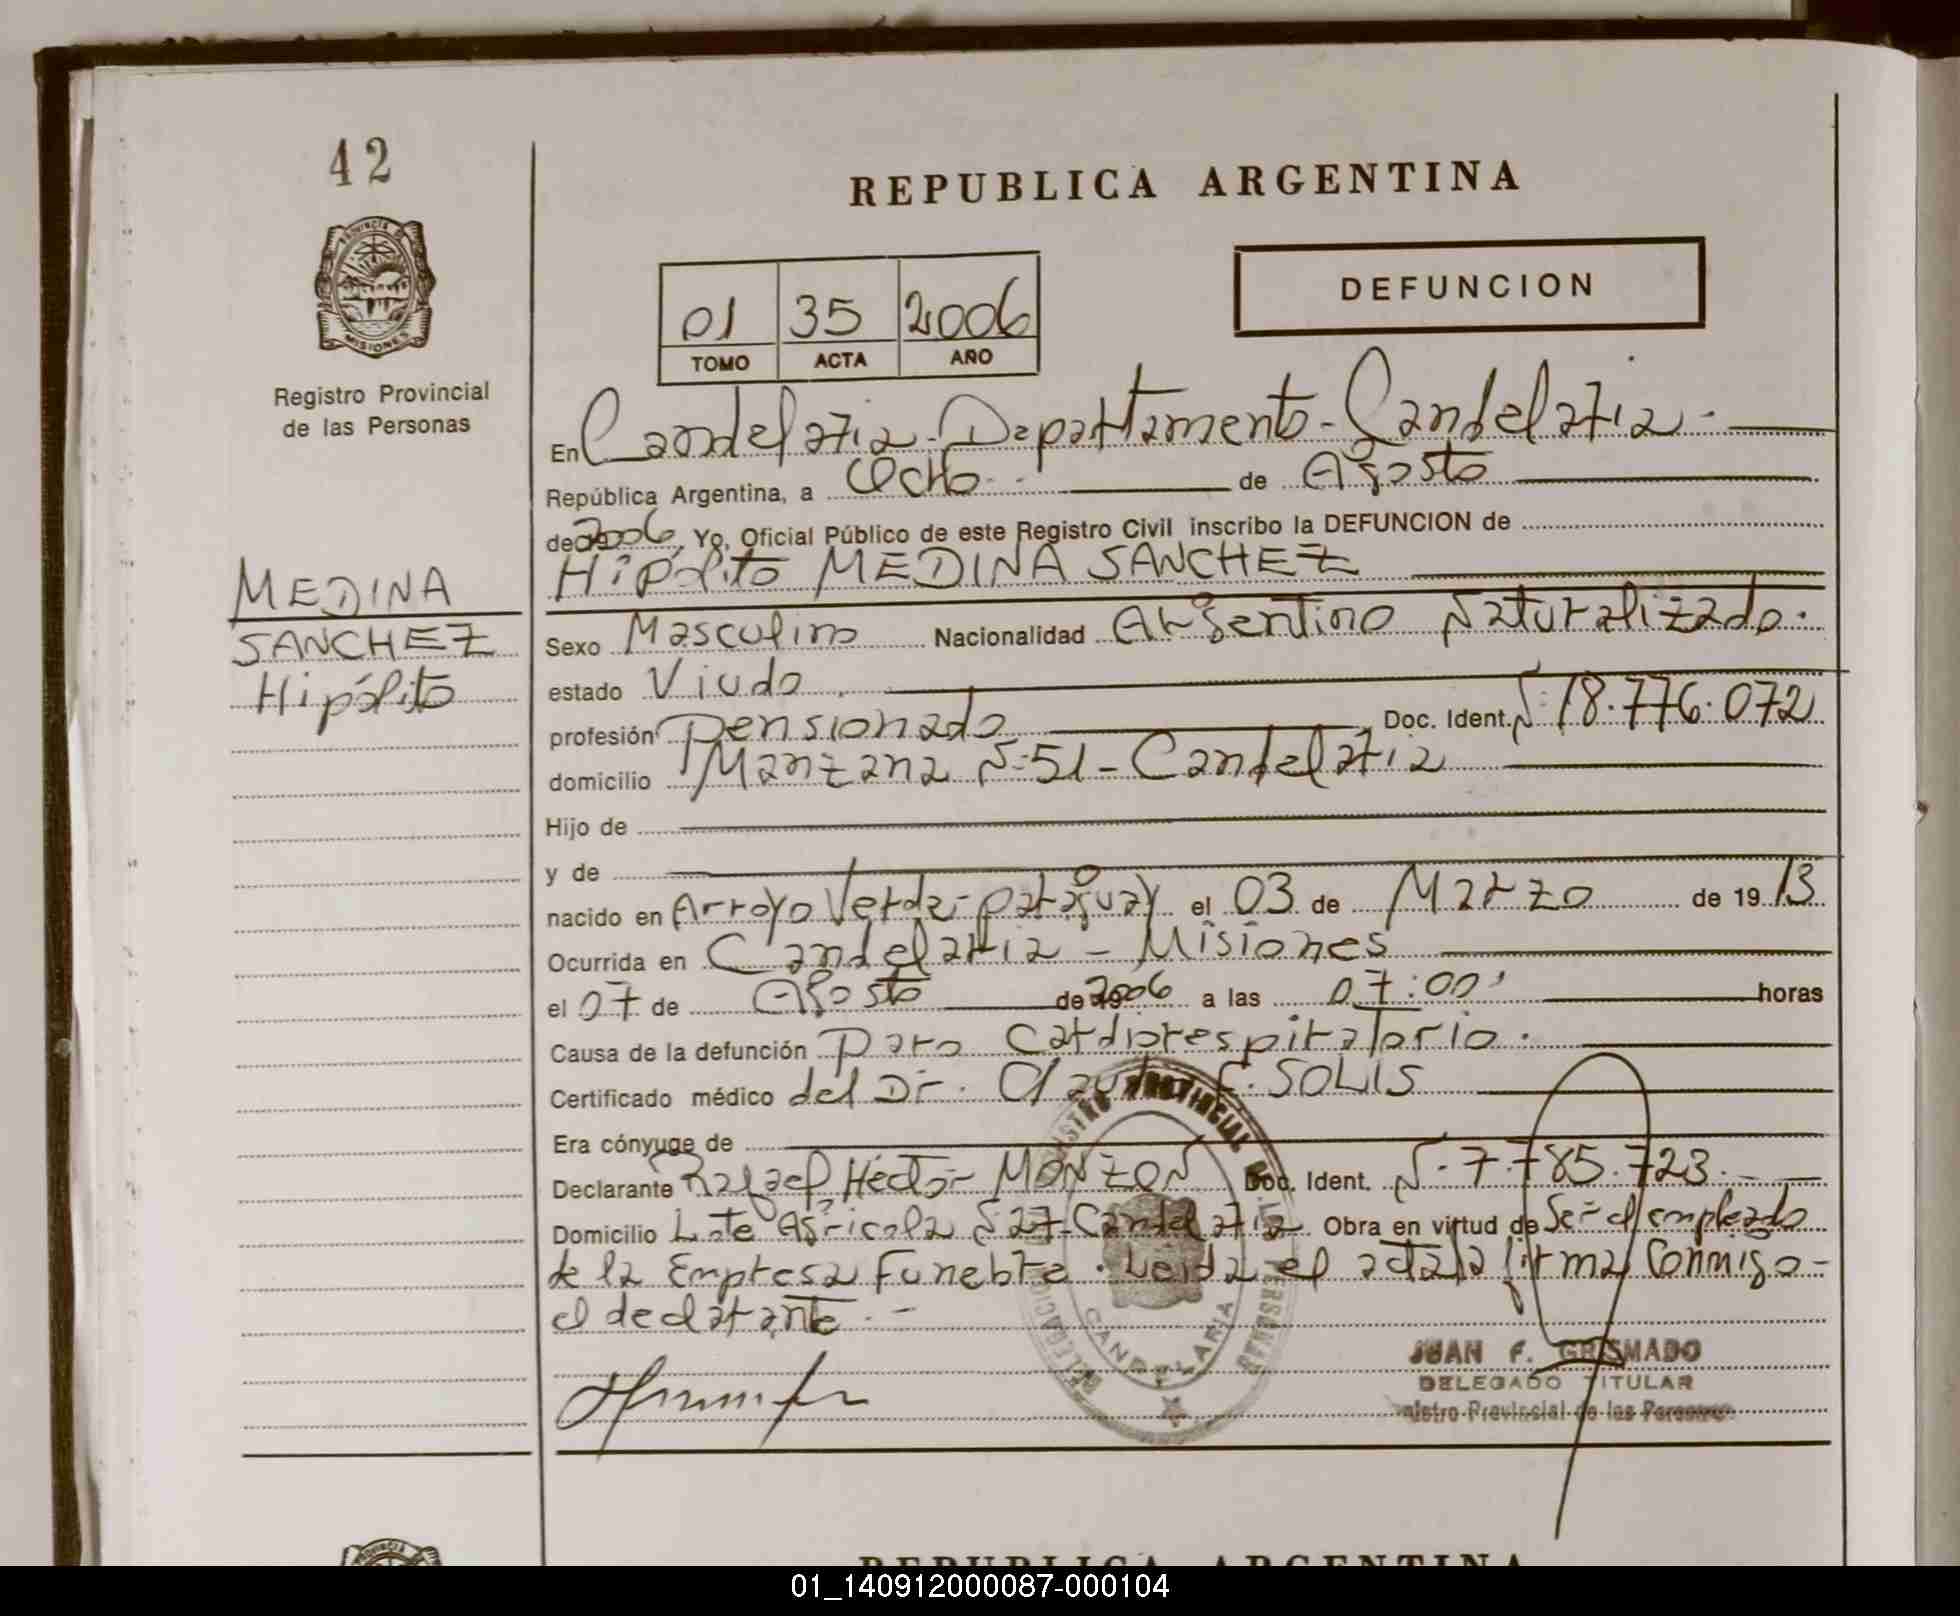 42
REPUBLICA ARGENTINA
PROVINCIA DE
MISIONES
DEFUNCION
01 35 2006
TOMO ACTA AÑO
Registro Provincial
de las Personas
En Candelaria - Departamento - Candelaria -
República Argentina, a Ocho de Agosto
de 2006, Yo, Oficial Público de este Registro Civil inscribo la DEFUNCION de
Hipólito MEDINA SANCHEZ
MEDINA
SANCHEZ
Hipólito
Sexo Masculino Nacionalidad Argentino Naturalizado.
estado Viudo
profesión Pensionado Doc. Ident. Nº 18.776.072
domicilio Manzana Nº 51 - Candelaria
Hijo de
y de
nacido en Arroyo Verde - Paraguay el 03 de Marzo de 1913
Ocurrida en Candelaria - Misiones
el 07 de Agosto de 2006 a las 07:00 horas
Causa de la defunción Paro Cardiorespiratorio.
Certificado médico del Dr. SOLIS
Era cónyuge de
Declarante Rafael Héctor MONZON Doc. Ident. Nº 7.785.723.
Domicilio Lote Agricola Nº 27 - Candelaria Obra en virtud de Ser el empleado
de la Empresa Funebre. Leida el acta la firma Conmigo -
el declarante. -
REGISTRO PROVINCIAL DE LAS PERSONAS
DELEGACION
CANDELARIA
JUAN F. GRISMADO
DELEGADO TITULAR
Registro Provincial de las Personas
REPUBLICA ARGENTINA
01_140912000087-000104